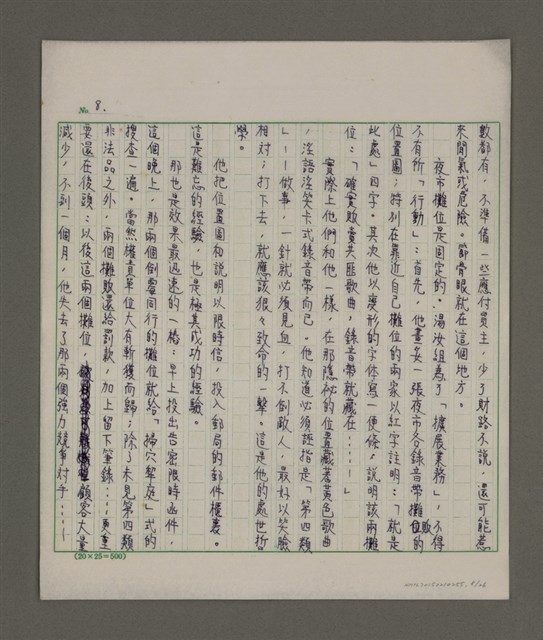 No. 8.
數都有，不準備一些應付員主，少了財路不說，還可能惹
來閒氣或危險。節骨眼就在這個地方。
夜市攤位是固定的。湯汝組為了「擴展業務」，不得
不有所「行動」：首先，他畫妥一張夜市各錄音帶攤位的
位置圖；特別在靠近自己攤位的兩家以紅字註明：「就是
此處」四字。其次他以變形的字体寫一便條，說明該兩攤
位：「確實販賣共匪歌曲，錄音帶就藏在……」
實際上他們和他一樣，在那隱祕的位置藏著黃色歌曲
，淫語淫笑卡式錄音帶而已。他知道必須誣指是「第四類
」——做事，一針就必須見血，打不倒敵人，最好以笑臉
相對；打下去，就應該狠々致命的一擊。這是他的處世哲
學。
他把位置圖和說明以限時信，投入郵局的郵件櫃裏。
這是難忘的經驗，也是極其成功的經驗。
那也是效果最迅速的一樁：早上投出告密限時函件，
這個晚上，那兩個倒霉同行的攤位就給「掃穴犁庭」式的
搜查一遍。當然權責單位大有斬獲而歸；除了未見第四類
非法品之外，兩個攤販還給罰款，加上留下筆錄……更重
要還在後頭：以後這兩個攤位，顧客大量
減少，不到一個月，他失去了那兩個強力競爭對手……
(20×25=500)